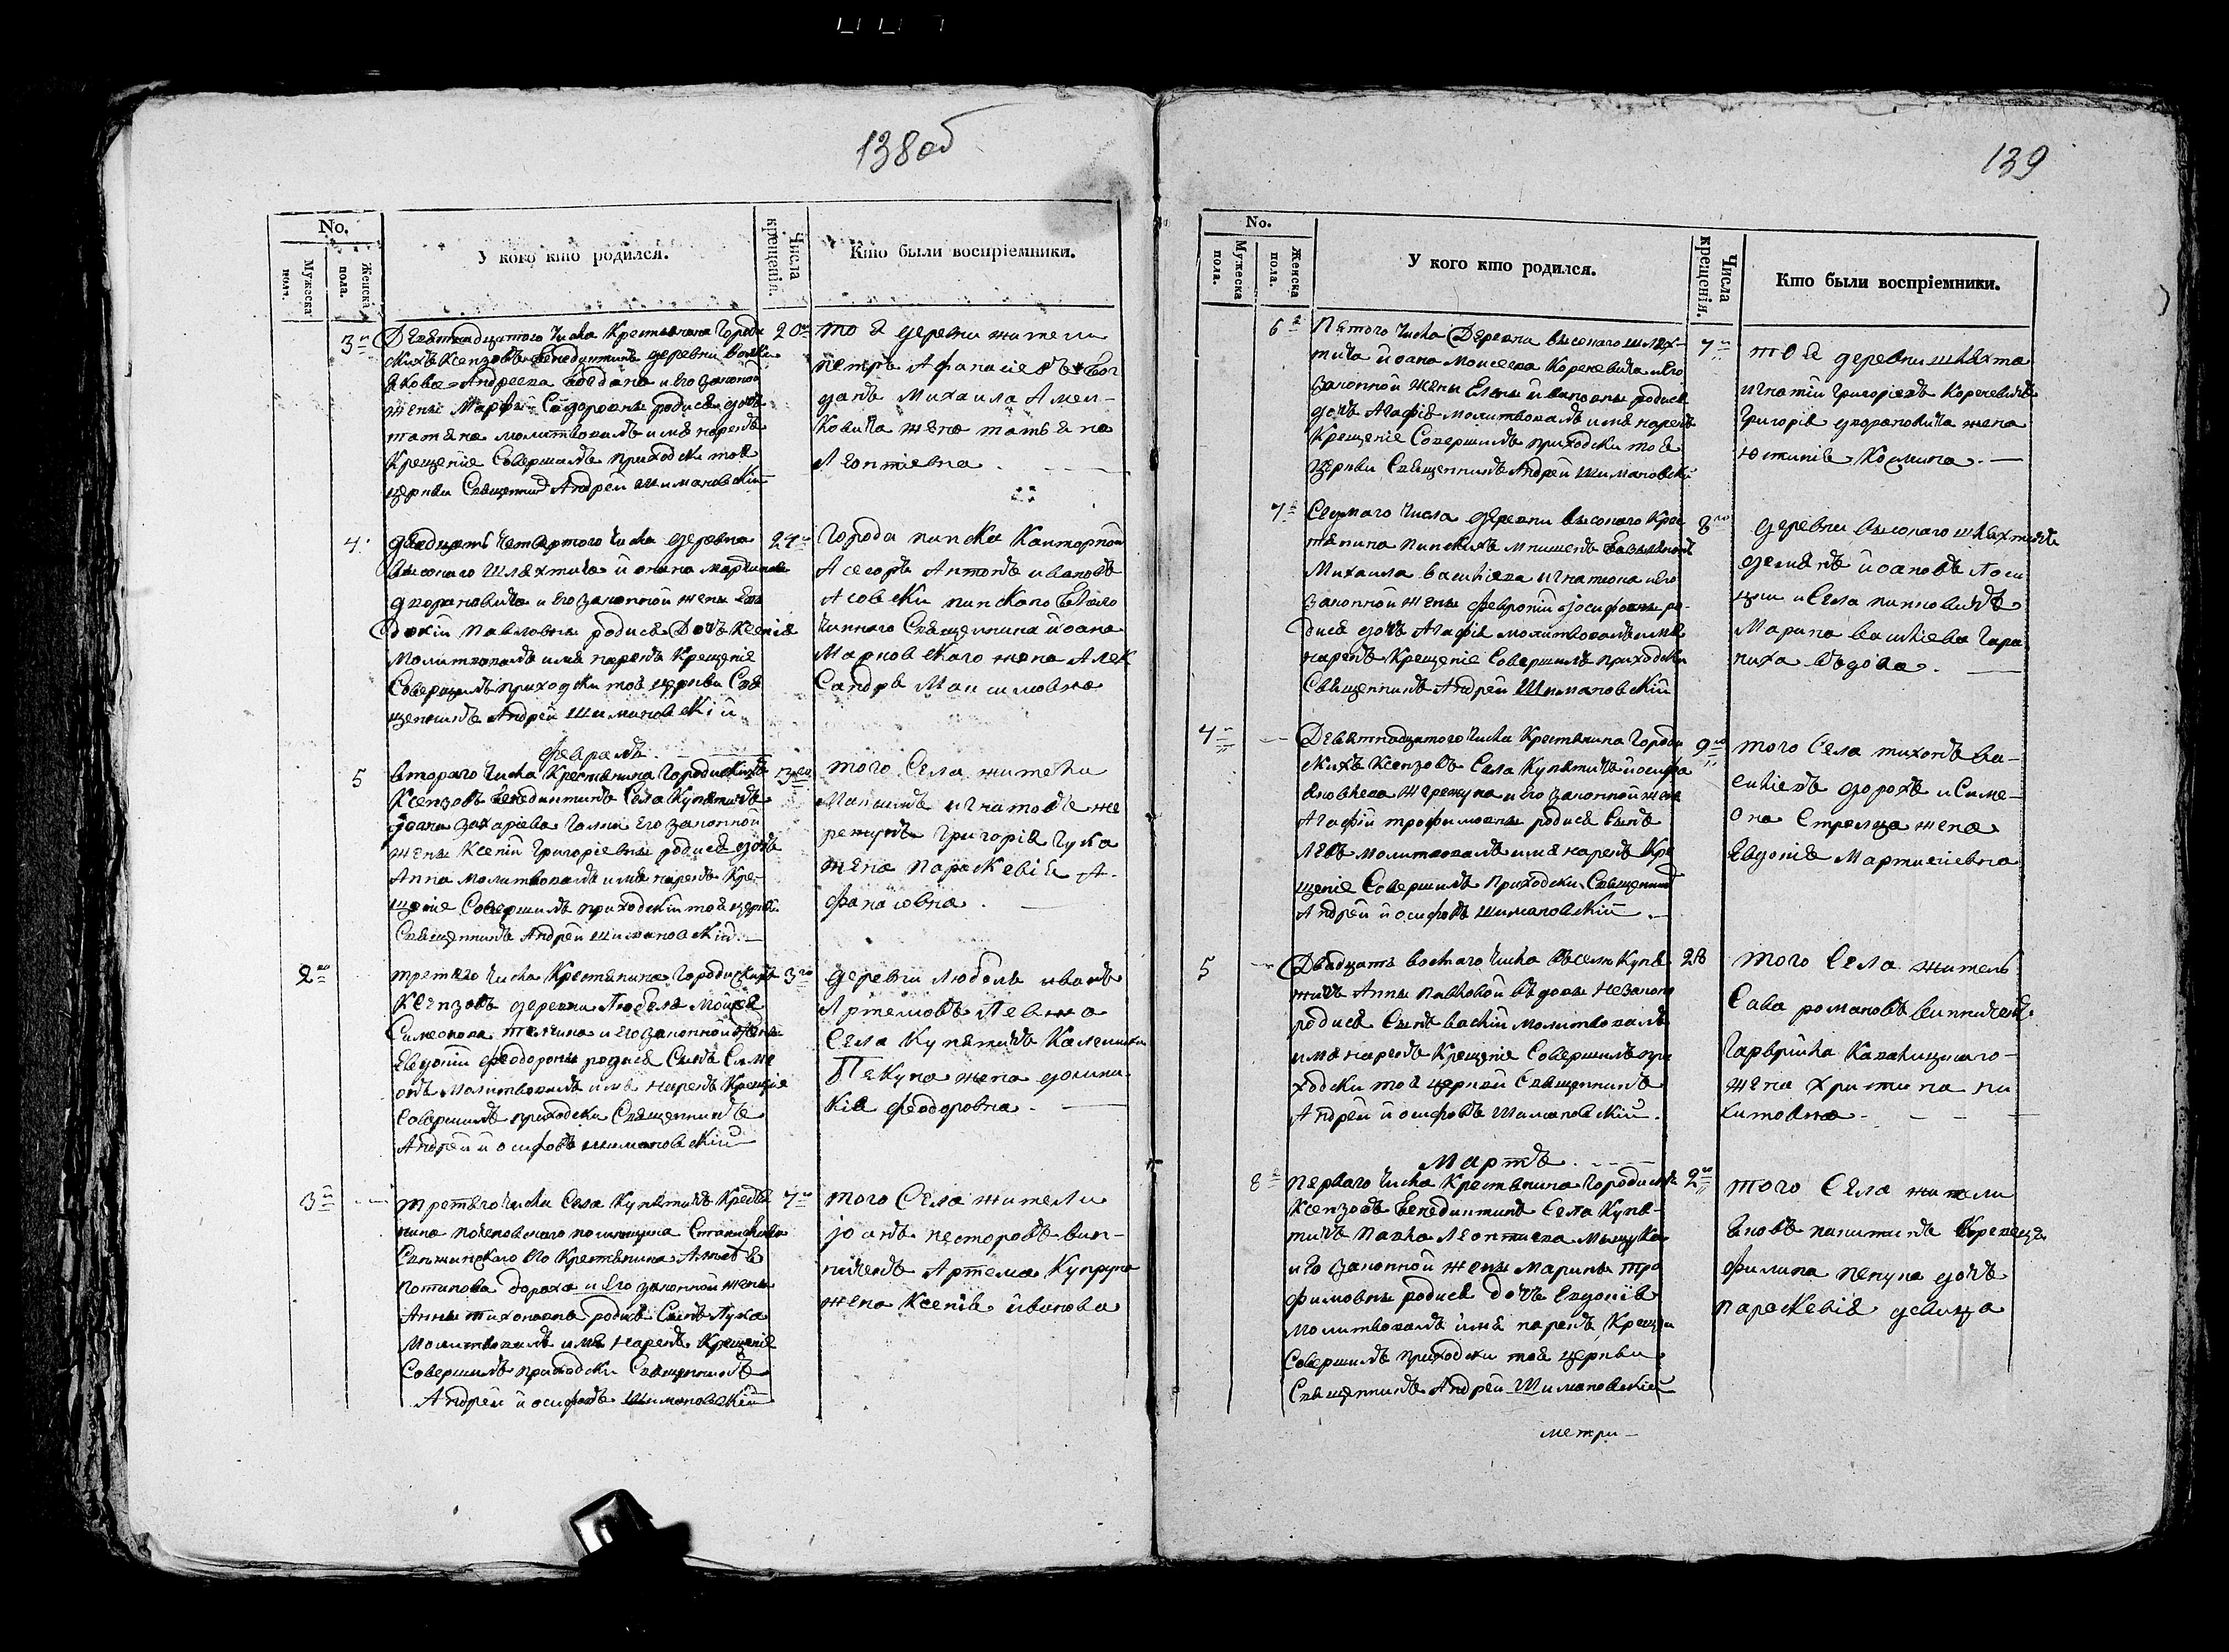 138об
No.
Мужеска пола.
Женска пола.
У кого кто родился.
Числа крещенія.
Кто были воспріемники.
3
Девятнадцатого Числа Крестьянина Городи
скихъ Ксензовъ Бенедиктинъ деревни
Якова Андреева и его законной
жены Марфы родися дочь
татіяна молитвовалъ имя нарекъ
Крещеніе Совершилъ приходски тоя
церкви Священникъ Андрей Шимановскій
20
тоя деревни жители
петръ Афанасіевъ
Михаила Амел-
Ковича жена татіяна
Леонтіевна
4
двадцать Четвертого Числа деревни
высокаго Шляхтича іоанна
дворановича и Его законной жены Евъ
докіи Павловны родися Дочь Ксенія
Молитвовалъ имя нарекъ Крещеніе
Совершилъ приходски тоя церкви Свя
щенникъ Андрей Шимановскій
24
Города пинска Канторной
Асесоръ Антонъ ивановъ
Асовски пинскаго
Священника іоана
Марковскаго жена Алек
Сандра Максимовна
февраль
5
втораго Числа Крестьянина Городискихъ
Ксензовъ Бенедиктинъ Села Купятичъ
іоана захарова Его законной
жены Ксеніи Григоріевны родися дочь
Анна молитвовалъ имя нарекъ Кре-
щеніе Совершилъ приходскій тоя церкви
Священникъ Андрей Шимановскій
3
того Села жители
Максимъ игнатовъ же
режунъ Григорія Гука
жена Параскевія А-
фанасовна
2
третяго Числа Крестьянина Городискихъ
Ксензовъ деревни Любеля Мойсея
Симеонова и его законной жены
Евдокіи Феодоровны родися Сынъ Симе
онъ Молитвовалъ имя нарекъ Крещеніе
Совершилъ приходски Священникъ
Андрей иосифовъ Шимановскій
3
деревни Любель иванъ
Артемовъ
Села Купятичъ
Пекуна жена домини
кія Феодоровна
3
третьего Числа Села Купятичъ Кресть
янина помещика Станислава
Его Крестьянина
потапова дороха и Его законной жены
Анны тихоновны родися Сынъ Лука
Молитвовалъ имя нарекъ Крещеніе
Совершилъ приходски Священникъ
Андрей иосифовъ Шимановскій
7
того Села жители
іоанъ несторовъ вин-
ничекъ Артема Купруна
жена Ксенія иванова
139
No.
Мужеска пола.
Женска пола.
У кого кто родился.
Числа крещенія.
Кто были воспріемники.
6
Пятого Числа Деревни высокаго шлях-
тича иоана Моисеева Кореневича и Его
законной жены Елены ивановны родися
дочь Агафія молитвовалъ имя нарекъ
Крещеніе Совершилъ приходски тоя
церкви Священникъ Андрей Шимановскій
7
тоя деревни шляхта
игнатій Григоріевъ Кореневичъ
Григорія дворановича жена
Юстинія Космина
7
Седмаго Числа деревни высокаго Крес
тянина пинскихъ
Михаила васильева игнатюка и Его
законной жены февроніи іосифовны ро-
дися дочь Агафія молитвовалъ имя
нарекъ Крещеніе Совершилъ приходски
Священникъ Андрей Шимановскій
8
деревни высокаго шляхтичъ
демянъ иоановъ
и Села
Марина василіева Гара
ниха въдова
4
Девятнадцатого Числа Крестянина Городи
скихъ Ксензовъ Села Купятичъ иосифа
Яковлева Жережуна и Его законной жены
Агафіи трофимовны родися Сынъ
Левъ молитвовалъ имя нарекъ Кре
щеніе Совершилъ приходски Священникъ
Андрей иосифовъ Шимановскій
9
того Села тихонъ ва-
силіевъ дорохъ и Симе-
она Стрельца жена
Евдокія Мартиніевна
5
Двадцать восмаго Числа въ селе Купя
тичъ Анны въдовы незаконо
родися Сынъ василій молитвовалъ
имя нарекъ Крещеніе Совершилъ при
ходски тоя церкви Священникъ
Андрей иосифовъ Шимановскій
28
того Села житель
Сава романовъ винничекъ
Гаврійла
жена христина ни
китовна
Мартъ
8
Перваго Числа Крестьянина Городискихъ
Ксензовъ Бенедиктинъ Села Купя-
тичъ Павла Леонтиева
и Его законной жены Марины тро
фимовны родися дочь Евдокія
Молитвовалъ имя нарекъ Крещени
Совершилъ приходски тоя церкви
Священникъ Андрей Шимановскій
2
того Села жители
Яковъ никитинъ
Филипа пекуна дочь
параскевія девица
метри-